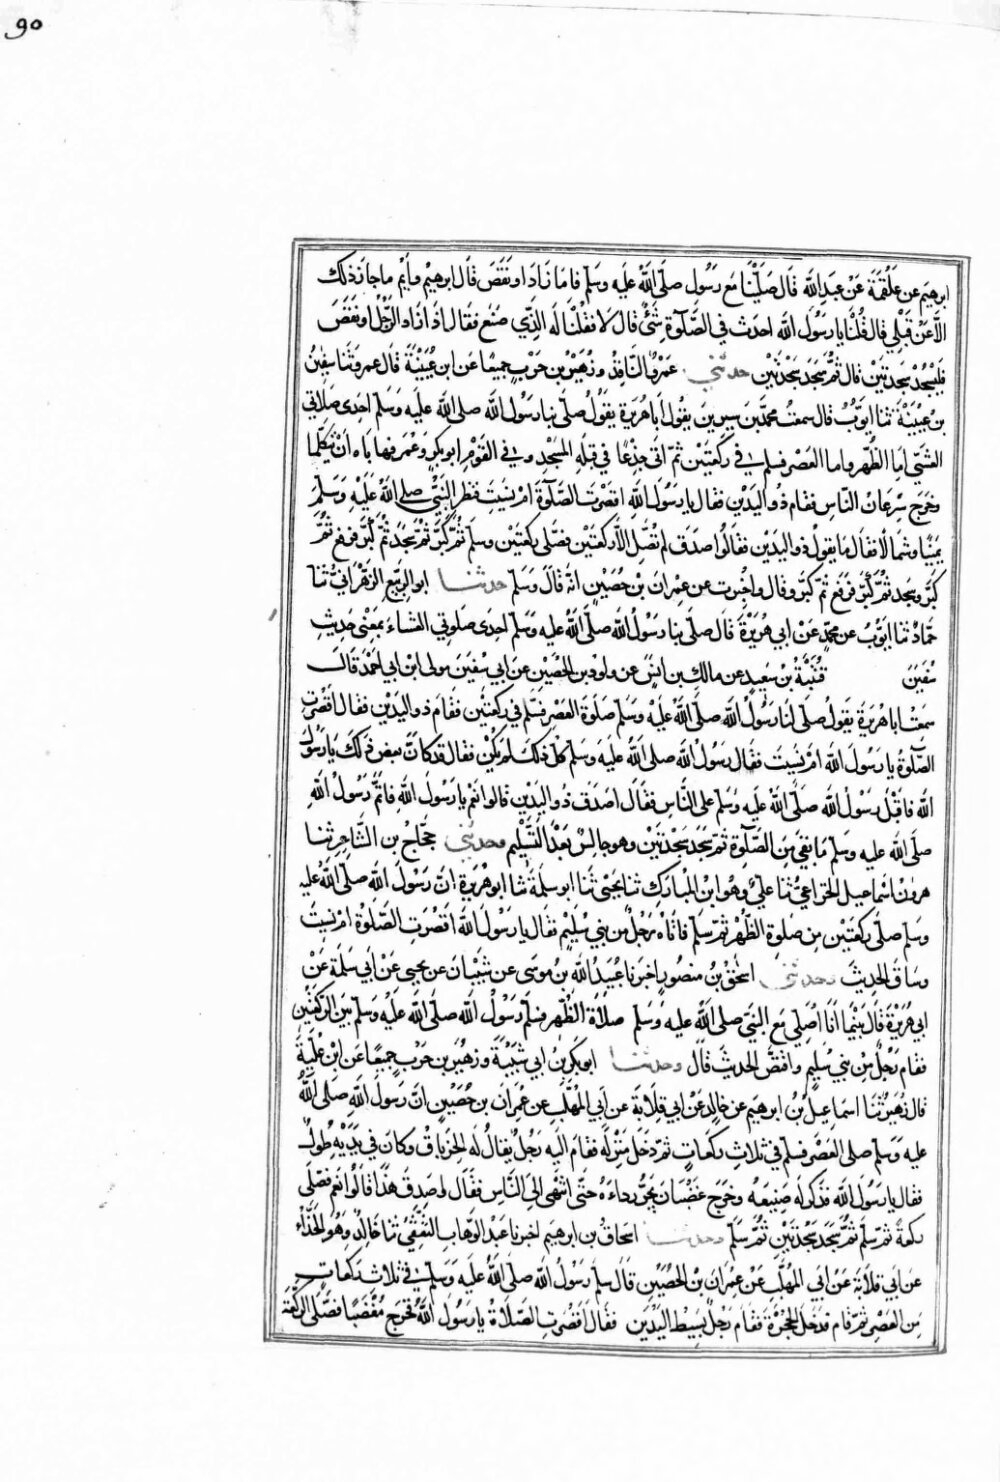 90
ابرهيم عن علقمة عن عبد الله قال صلينا مع رسول صلى الله عليه وسلم فاما زاد او نقص قال ابرهيم وأيم ما جاء ذلك
الا عن قبلي قال قلنا يا رسول الله احدث في الصلوة شئ قال لا فقلنا له الذي صنع فقال اذا زاد الرجل او نقص
فليسجد سجدتين قال ثم سجد سجدتين حدثني عمرو الناقد وزهير بن حرب جميعا عن ابن عيينة قال عمرو ثنا سفين
بن عيينة ثنا ايوب قال سمعت محمد بن سيرين يقول أبا هريرة يقول صلى بنا رسول الله صلى الله عليه وسلم احدى صلاتي
العشي اما الظهر واما العصر فسلم في ركعتين ثم اتى جذعا في قبلة المسجد وفي القوم ابو بكر وعمر فهاباه أن يتكلما
وخرج سرعان الناس فقام ذو اليدين فقال يا رسول الله اقصرت الصلوة ام نسيت فنظر النبي صلى الله عليه وسلم
يمينا وشمالا فقال ما يقول ذو اليدين فقالوا صدق لم تصل الا ركعتين فصلى ركعتين وسلم ثم كبر ثم سجد ثم كبر فرفع ثم
كبر وسجد ثم كبر فرفع ثم كبر وقال واخبرت عن عمران بن حصين انه قال وسلم حدثنا ابو الربيع الزهراني ثنا
حماد ثنا ايوب عن محمد عن ابي هريرة قال صلى بنا رسول الله صلى الله عليه وسلم احدى صلوتي العشاء بمعنى حديث
سفين قتيبة بن سعيد عن مالك بن انس عن داود بن الحصين عن ابي سفين مولى ابن ابي احمد قال
سمعت ابا هريرة يقول صلى لنا رسول الله صلى الله عليه وسلم صلوة العصر فسلم في ركعتين فقام ذو اليدين فقال اقصرت
الصلوة يا رسول الله ام نسيت فقال رسول الله صلى الله عليه وسلم كل ذلك لم يكن فقال قد كان بعض ذلك يا رسول
الله فاقبل رسول الله صلى الله عليه وسلم على الناس فقال اصدق ذو اليدين قالوا نعم يا رسول الله فاتم رسول الله
صلى الله عليه وسلم ما بقي من الصلوة ثم سجد سجدتين وهو جالس بعد التسليم وحدثني حجاج بن الشاعر ثنا
هرون اسماعيل الخزاعي ثنا علي وهو ابن المبارك ثنا يحيى ثنا ابو سلمة ثنا ابو هريرة ان رسول الله صلى الله عليه
وسلم صلى ركعتين من صلوة الظهر ثم سلم فاتاه رجل من بني سليم فقال يا رسول الله أقصرت الصلوة ام نسيت
وساق الحديث وحدثني اسحق بن منصور اخبرنا عبيد الله بن موسى عن شيبان عن يحيى عن ابي سلمة عن
ابي هريرة قال بينما أنا أصلي مع النبي صلى الله عليه وسلم صلاة الظهر فسلم رسول الله صلى الله عليه وسلم بين الركعتين
فقام رجل من بني سليم واقتص الحديث قال وحدثنا ابو بكر بن ابي شيبة وزهير بن حرب جميعا عن ابن علية
قال زهير ثنا اسماعيل بن ابرهيم عن خالد عن ابي قلابة عن أبي المهلب عن عمران بن حصين ان رسول الله صلى الله
عليه وسلم صلى العصر فسلم في ثلاث ركعات ثم دخل منزله فقام اليه رجل يقال له الخرباق وكان في يديه طول
فقال يا رسول الله فذكر له صنيعه وخرج غضبان يجر رداءه حتى انتهى الى الناس فقال اصدق هذا قالوا نعم فصلى
ركعة ثم سلم ثم سجد سجدتين ثم سلم وحدثنا اسحاق بن ابرهيم اخبرنا عبد الوهاب الثقفي ثنا خالد وهو الحذاء
عن ابي قلابة عن ابي المهلب عن عمران بن الحصين قال سلم رسول الله صلى الله عليه وسلم في ثلاث ركعات
من العصر ثم قام فدخل الحجرة فقام رجل بسيط اليدين فقال اقصرت الصلاة يا رسول الله فخرج مغضبا فصلى الركعة